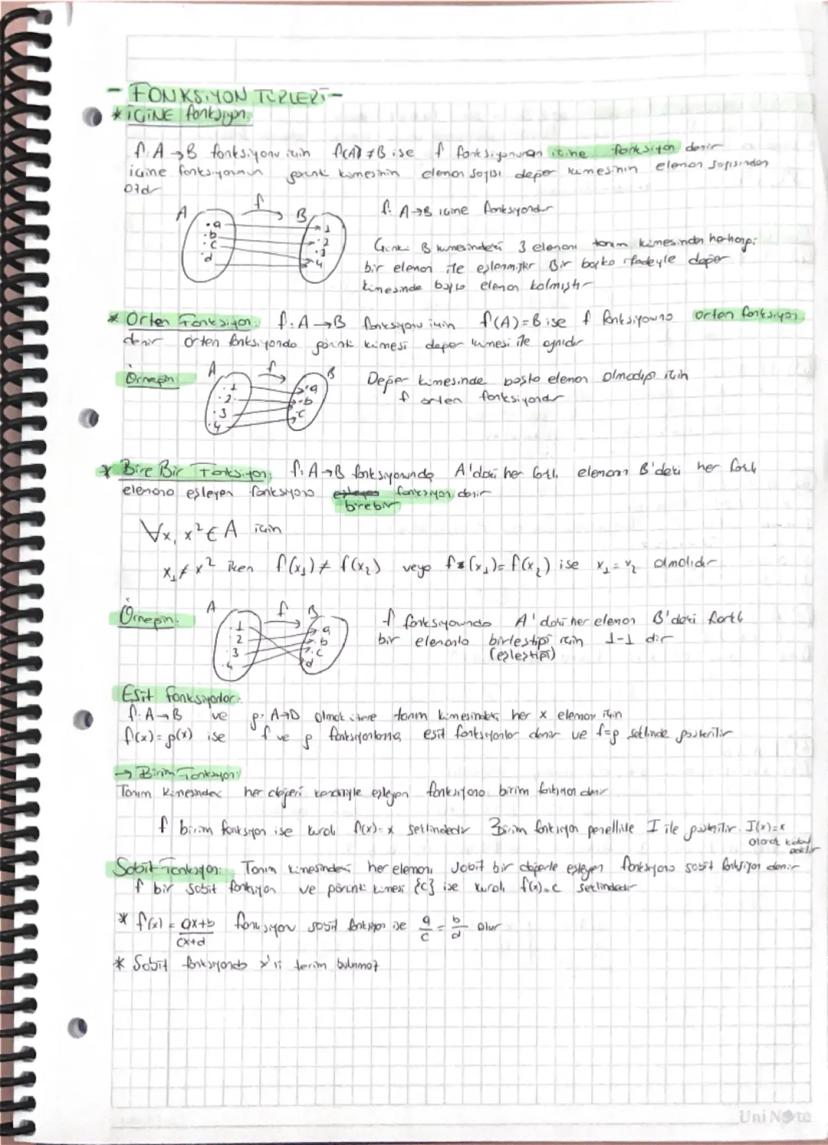 - FONKSİYON TÜRLERİ -
* İÇİNE fonksiyon:
f: A → B fonksiyonu için f(A) ≠ B ise f fonksiyonuna içine fonksiyon denir
içine fonksiyonunun görüntü kümesinin eleman sayısı değer kümesinin eleman sayısından
A f B
a
b
c
d
1
2
3
4
f: A→B içine fonksiyondur
Çünkü B kümesindeki 3 elemanı tanım kümesinden herhangi
bir eleman ile eşlenmiştir Bir başka ifadeyle değer
kümesinde boşta eleman kalmıştır
* Örten Fonksiyon: f: A → B fonksiyonu için f(A) = B ise f fonksiyonuna örten fonksiyon
denir Örten fonksiyonda görüntü kümesi değer kümesi ile aynıdır
Örneğin:
A f B
1
2
3
4
a
b
c
Değer kümesinde boşta eleman olmadığı için
f örten fonksiyondur
* Bire Bir Fonksiyon: f: A→B fonksiyonunda A'daki her farklı elemanı B'deki her farklı
elemana eşleyen fonksiyona fonksiyon denir
birebir
∀x, x² ∈ A için
x₁ ≠ x² iken f(x₁) ≠ f(x₂) veya f(x₁) = f(x₂) ise x₁ = x₂ olmalıdır
Örneğin:
A f B
1
2
3
4
a
b
c
d
f fonksiyonunda A'daki her eleman B'deki farklı
bir elemanla birleştiği için 1-1 dir
(eşleştiği)
Eşit fonksiyonlar:
f: A→B ve g: A→D olmak üzere tanım kümesindeki her x elemanı için
f(x) = g(x) ise f ve g fonksiyonlarına eşit fonksiyonlar denir ve f=g şeklinde gösterilir
→ Birim Fonksiyon:
Tanım kümesindeki her değeri kendisiyle eşleyen fonksiyona birim fonksiyon denir
f birim fonksiyon ise kuralı f(x) = x şeklindedir Birim fonksiyon genellikle I ile gösterilir. I(x)=x
olarak kabul edilir
Sabit Fonksiyon: Tanım kümesindeki her elemanı sabit bir değerle eşleyen fonksiyona sabit fonksiyon denir
f bir sabit fonksiyon ve görüntü kümesi {c} ise kuralı f(x)=c şeklindedir
* f(x) = ax+b / cx+d fonksiyonu sabit fonksiyon ise a/c = b/d olur
* Sabit fonksiyonda x'li terim bulunmaz
Uni Note